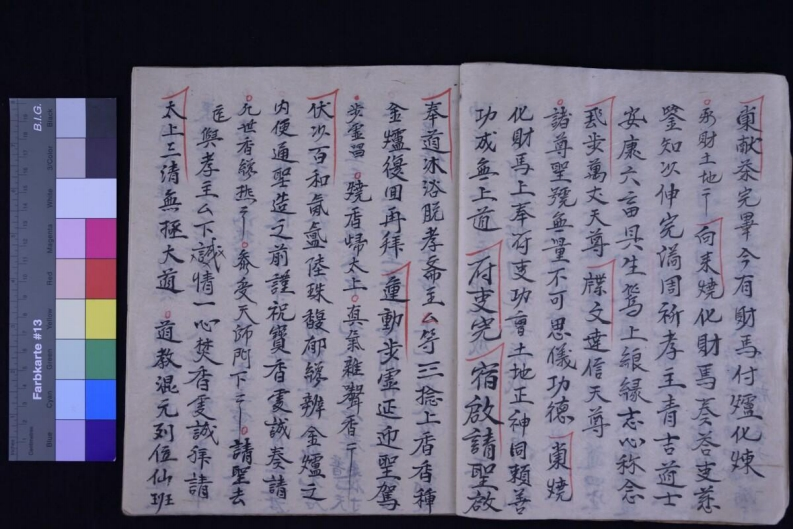 東獻茶完畢今有財馬付爐化煉
土地
向来燒化財馬奏答支慈
鑒知以伸完滿周祈孝主青吉道士
安康六畜具生駕上線緣志心称念
飛步萬丈天尊 牒文達信天尊
諸尊聖號無量不可思儀功德 東燒
化財馬上奉府吏功曹土地正神同賴善
功成無上道 府吏完 宿啟請聖啟
奉道沐浴脫孝斋主厶等三捻上香香種
金爐復回再拜 運動步虛迎聖駕
步虛 燒香歸太上真氣雜聲香
伏以百和氤氳陸珠馥郁辦金爐之
内便通聖造之前謹祝寶香虔誠奏請
九世香 天師門下 請聖去
與孝主厶下誠情一心焚香虔誠拜請
太上三清無極大道 道教混元列位仙班
B.I.G.
Farbkarte #13
Blue
Cyan
Green
Yellow
Red
Magenta
White
3/Color
Black